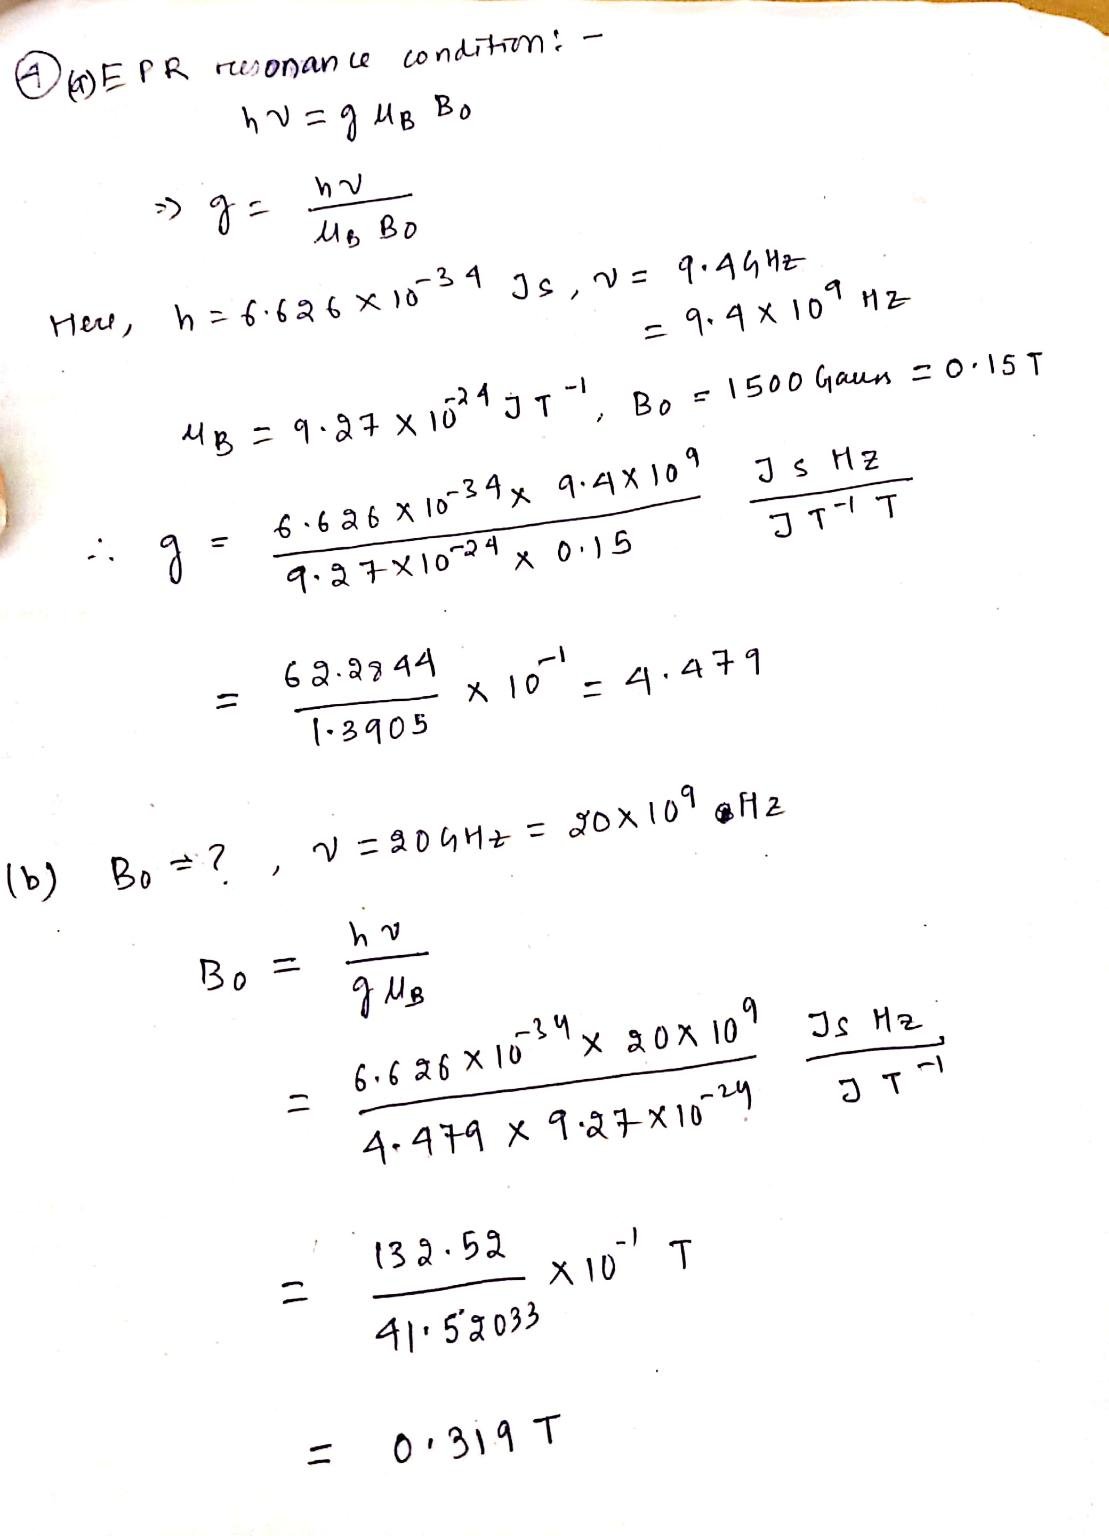 ④ (a) EPR resonance condition: -
hν = g μB B0
⇒ g = hν / μB B0
Here, h = 6.626 × 10^-34 Js, ν = 9.4 GHz
= 9.4 × 10^9 Hz
μB = 9.27 × 10^-24 J T^-1, B0 = 1500 Gauss = 0.15 T
∴ g = 6.626 × 10^-34 × 9.4 × 10^9 / 9.27 × 10^-24 × 0.15 J s Hz / J T^-1 T
= 62.2844 / 1.3905 × 10^-1 = 4.479
(b) B0 = ?, ν = 20 GHz = 20 × 10^9 Hz
B0 = hν / g μB
= 6.626 × 10^-34 × 20 × 10^9 / 4.479 × 9.27 × 10^-24 Js Hz / J T^-1
= 132.52 / 41.52033 × 10^-1 T
= 0.319 T